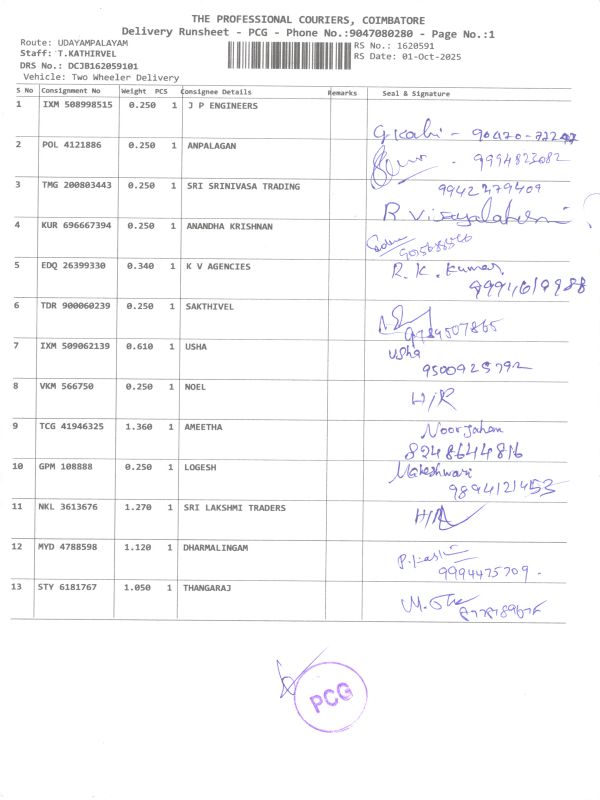 THE PROFESSIONAL COURIERS, COIMBATORE
Delivery Runsheet - PCG - Phone No.:9047080280 - Page No.:1
Route: UDAYAMPALAYAM RS No.: 1620591
Staff: T.KATHIRVEL RS Date: 01-Oct-2025
DRS No.: DCJB162059101
Vehicle: Two Wheeler Delivery
S No Consignment No Weight PCS Consignee Details Remarks Seal & Signature
1 IXM 508998515 0.250 1 J P ENGINEERS
2 POL 4121886 0.250 1 ANPALAGAN 9994823082
3 TMG 200803443 0.250 1 SRI SRINIVASA TRADING 9942479409
4 KUR 696667394 0.250 1 ANANDHA KRISHNAN
5 EDQ 26399330 0.340 1 K V AGENCIES R.K. Kumar
6 TDR 900060239 0.250 1 SAKTHIVEL 9789507865
7 IXM 509062139 0.610 1 USHA Usha
9500925792
8 VKM 566750 0.250 1 NOEL H/R
9 TCG 41946325 1.360 1 AMEETHA Noorjahan
8248644816
10 GPM 108888 0.250 1 LOGESH Makeshwari
9894121453
11 NKL 3613676 1.270 1 SRI LAKSHMI TRADERS H/R
12 MYD 4788598 1.120 1 DHARMALINGAM
9994475709.
13 STY 6181767 1.050 1 THANGARAJ
PCG